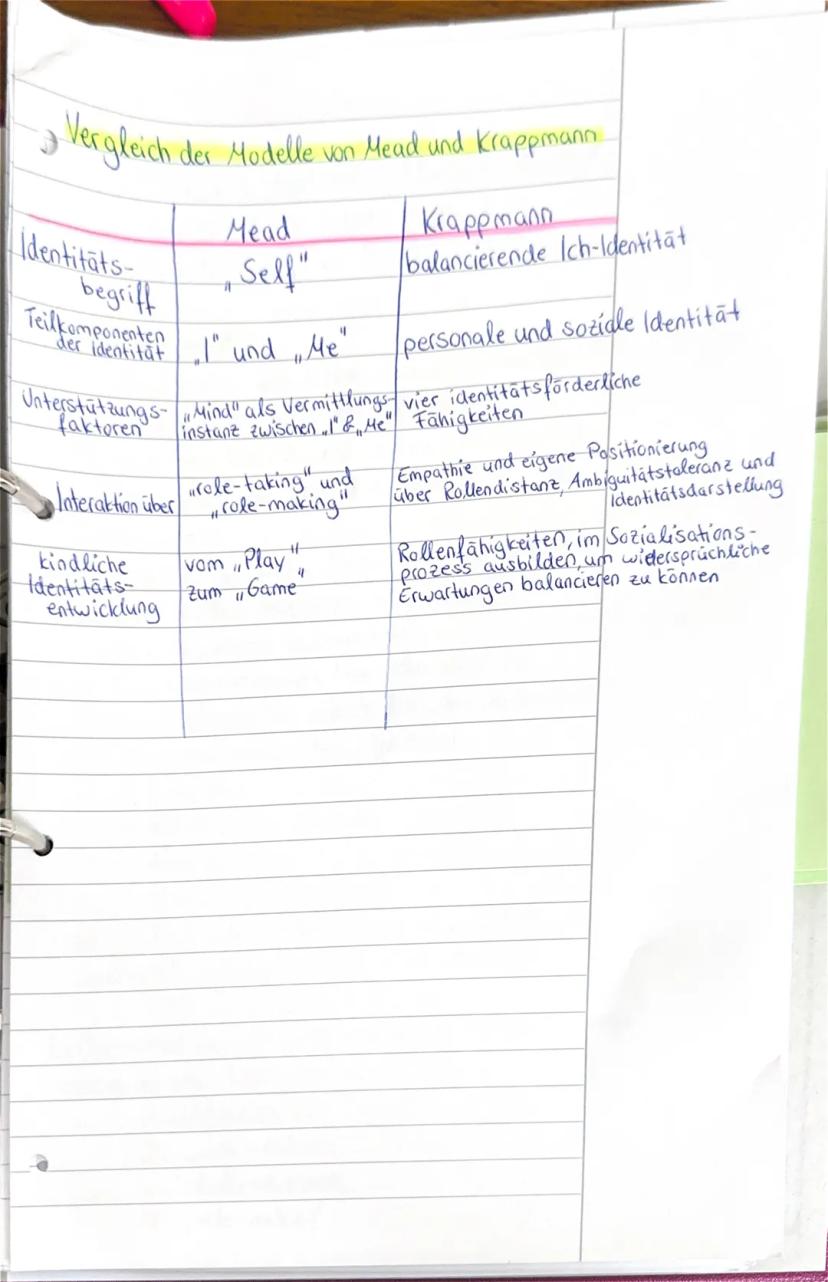 Vergleich der Modelle von Mead und Krappmann
Mead
Krappmann
Identitäts-
begriff
„Self"
balancierende Ich-Identität
Teilkomponenten
der Identität
„I" und „Me"
personale und soziale Identität
Unterstützungs-
faktoren
„Mind" als Vermittlungs-
instanz zwischen „I" & „Me"
vier identitätsförderliche
Fähigkeiten
Interaktion über
„role-taking" und
„role-making"
Empathie und eigene Positionierung
über Rollendistanz, Ambiguitätstoleranz und
Identitätsdarstellung
kindliche
Identitäts-
entwicklung
vom „Play"
zum „Game"
Rollenfähigkeiten, im Sozialisations-
prozess ausbilden, um widersprüchliche
Erwartungen balancieren zu können